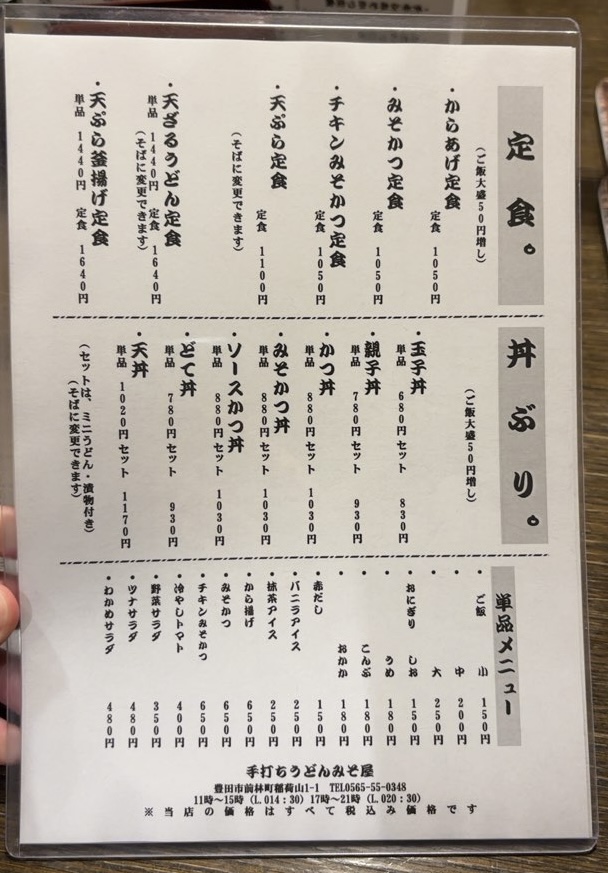 定食。
（ご飯大盛50円増し）
・からあげ定食
定食 1050円
・みそかつ定食
定食 1050円
・チキンみそかつ定食
定食 1050円
・天ぷら定食
定食 1100円
（そばに変更できます）
・天ざるうどん定食
単品 1440円 定食 1640円
（そばに変更できます）
・天ぷら釜揚げ定食
単品 1440円 定食 1640円
丼ぶり。
（ご飯大盛50円増し）
・玉子丼
単品 680円 セット 830円
・親子丼
単品 780円 セット 930円
・かつ丼
単品 880円 セット 1030円
・みそかつ丼
単品 880円 セット 1030円
・ソースかつ丼
単品 880円 セット 1030円
・どて丼
単品 780円 セット 930円
・天丼
単品 1020円 セット 1170円
（セットは、ミニうどん・漬物付き）
（そばに変更できます）
単品メニュー
・ご飯 小 150円
・ 中 200円
・ 大 250円
・おにぎり しお 150円
・ うめ 180円
・ こんぶ 180円
・ おかか 180円
・赤だし 150円
・バニラアイス 250円
・抹茶アイス 250円
・から揚げ 650円
・みそかつ 650円
・チキンみそかつ 650円
・冷やしトマト 400円
・野菜サラダ 350円
・ツナサラダ 480円
・わかめサラダ 480円
手打ちうどんみそ屋
豊田市前林町稲荷山1-1 TEL0565-55-0348
11時〜15時（L.O14：30）17時〜21時（L.O20：30）
※当店の価格はすべて税込み価格です